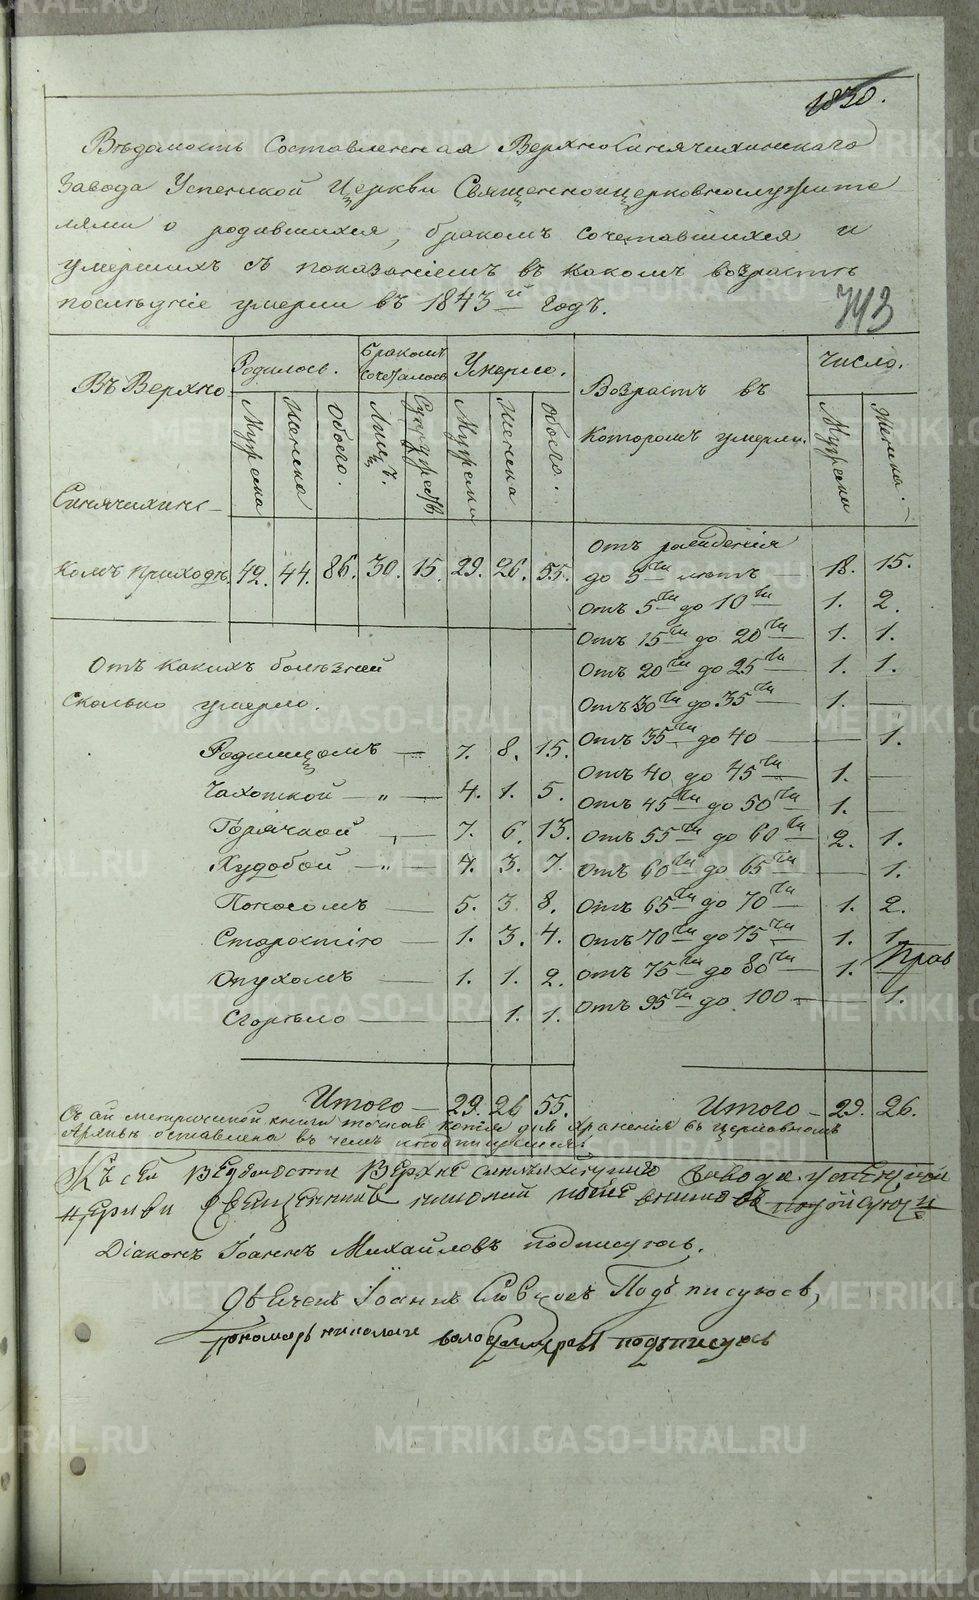 1830.
Вѣдомость Составленная ВерхноСинячихинскаго
Завода Успенской Церкви Священноицерковнослужите
лями о родившихся, бракомъ сочетавшихся и
умершихъ съ показаніемъ въ какомъ возрастѣ
послѣдніе умерли въ 1843й годѣ.
743
Въ Верхно
Синячихинс-
комъ приходѣ.
Родилось.
Бракомъ сочеталось
Умерло.
Возрастъ въ
которомъ умерли.
Число.
Мужеска Женска Обоего. Лицъ. Супружествъ Мужеска Женска Обоего. Мужеска Женска.
42. 44. 86. 30. 15. 29. 26. 55.
Отъ рожденія
до 5ти лѣтъ — 18. 15.
Отъ 5ти до 10ти 1. 2.
Отъ 15ти до 20ти 1. 1.
Отъ 20ти до 25ти 1. 1.
Отъ 30ти до 35ти 1. —
Отъ 35ти до 40 — — 1.
Отъ 40 до 45ти 1. —
Отъ 45ти до 50ти 1. —
Отъ 55ти до 60ти 2. 1.
Отъ 60ти до 65ти — 1.
Отъ 65ти до 70ти 1. 2.
Отъ 70ти до 75ти 1. 1.
Отъ 75ти до 80ти 1. —
Прав
Отъ 95ти до 100 — — 1.
Итого — 29. 26.
Отъ какихъ болѣзней
сколько умерло.
Родимцомъ — 7. 8. 15.
Чахоткой — „ — 4. 1. 5.
Горячкой „ — 7. 6. 13.
Худобой — „ — 4. 3. 7.
Поносомъ — 5. 3. 8.
Старостію — 1. 3. 4.
Опухомъ — 1. 1. 2.
Сгорѣло — — 1. 1.
Итого — 29. 26 55.
Съ сей метрической книги точная копія для храненія въ церковномъ
Архивѣ оставлена въ чемъ и подписуемся:
Къ сей ведомости Верхне синячихинскаго завода успенской
церкви священникъ подписуюсь
Діаконъ Іоаннъ Михайловъ подписуюсь.
Іоаннъ Подъписуюсь,
пономарь николай подъписуюсь
METRIKI.GASO-URAL.RU